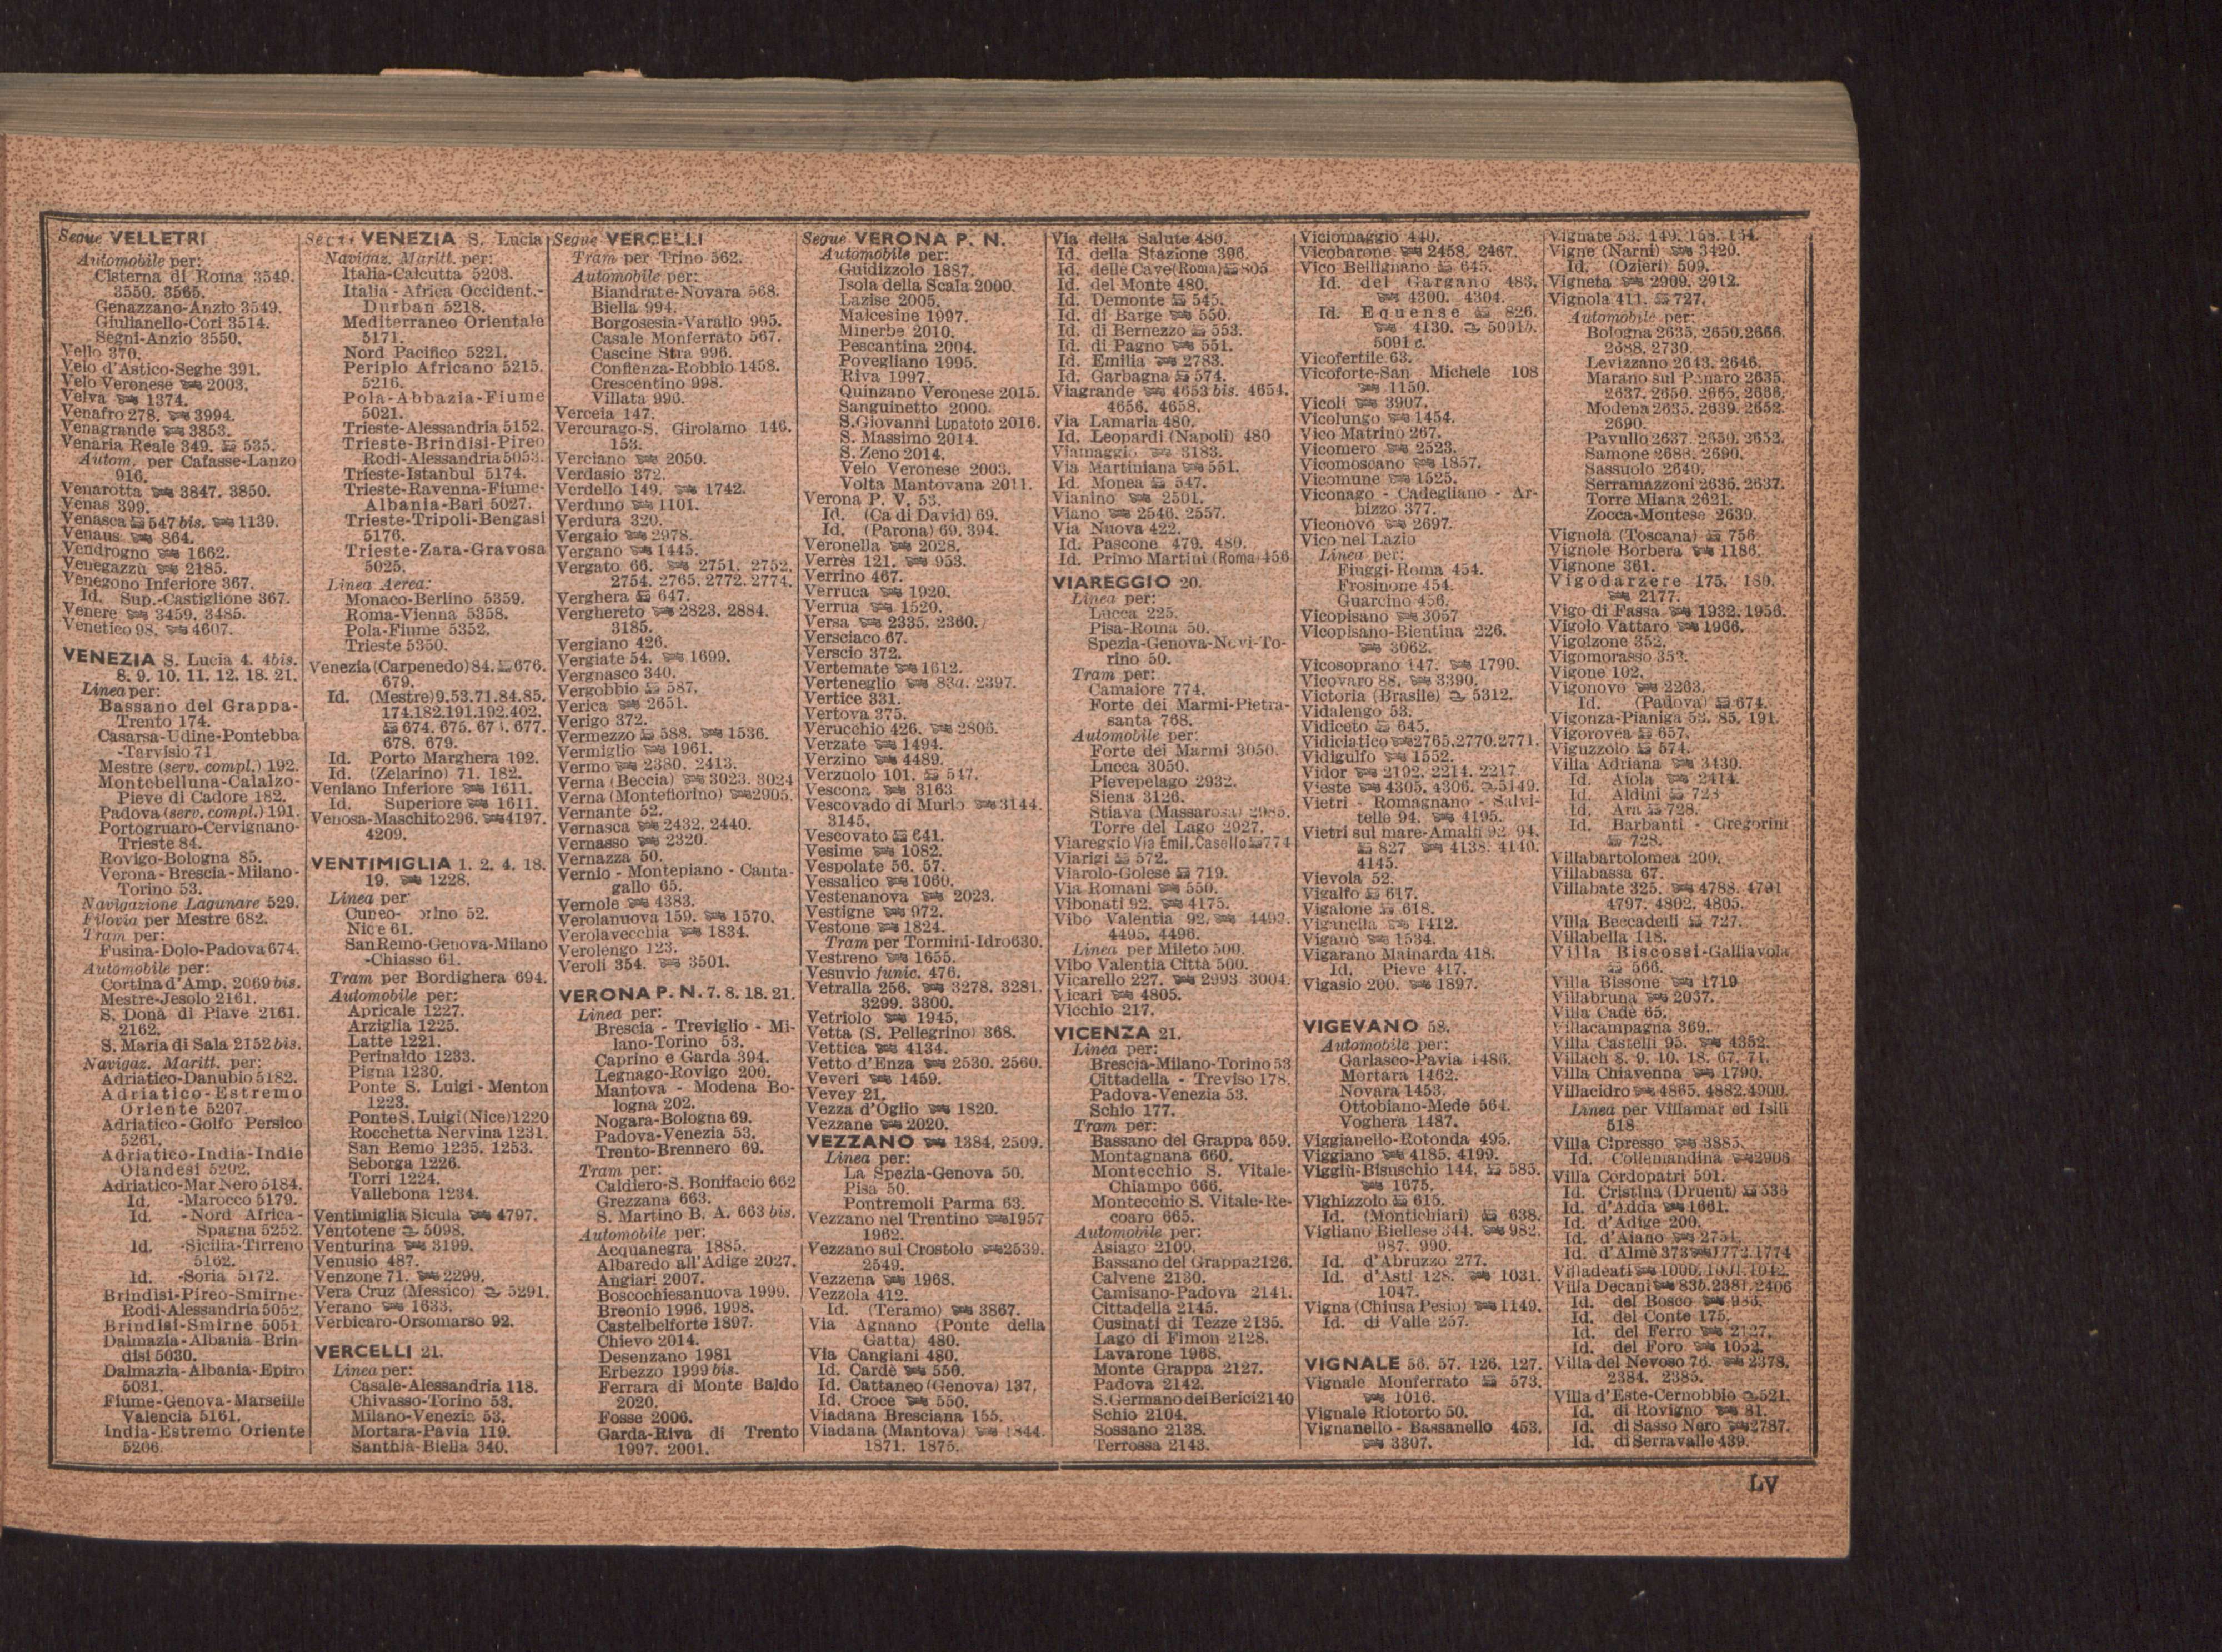 Segue VELLETRI
Automobile per:
Cisterna di Roma 3549.
3550. 3565.
Genazzano-Anzio 3549.
Giulianello-Cori 3514.
Segni-Anzio 3550.
Vello 370.
Velo d'Astico-Seghe 391.
Velo Veronese 2003.
Velva 1374.
Venafro 278. 3994.
Venagrande 3853.
Venaria Reale 349. 535.
Autom. per Cafasse-Lanzo
916.
Venarotta 3847. 3850.
Venas 399.
Venasca 547 bis. 1139.
Venaus 864.
Vendrogno 1662.
Venegazzù 2185.
Venegono Inferiore 367.
Id. Sup.-Castiglione 367.
Venere 3459. 3485.
Venetico 98. 4607.
VENEZIA S. Lucia 4. 4bis.
8. 9. 10. 11. 12. 18. 21.
Linea per:
Bassano del Grappa-
Trento 174.
Casarsa-Udine-Pontebba
-Tarvisio 71
Mestre (serv. compl.) 192.
Montebelluna-Calalzo-
Pieve di Cadore 182.
Padova (serv. compl.) 191.
Portogruaro-Cervignano-
Trieste 84.
Rovigo-Bologna 85.
Verona-Brescia-Milano-
Torino 53.
Navigazione Lagunare 529.
Filovia per Mestre 682.
Tram per:
Fusina-Dolo-Padova 674.
Automobile per:
Cortina d'Amp. 2069 bis.
Mestre-Jesolo 2161.
S. Donà di Piave 2161.
2162.
S. Maria di Sala 2152 bis.
Navigaz. Maritt. per:
Adriatico-Danubio 5182.
Adriatico-Estremo
Oriente 5207.
Adriatico-Golfo Persico
5261.
Adriatico-India-Indie
Olandesi 5202.
Adriatico-Mar Nero 5184.
Id. -Marocco 5179.
Id. -Nord Africa-
Spagna 5252.
Id. -Sicilia-Tirreno
5162.
Id. -Soria 5172.
Brindisi-Pireo-Smirne-
Rodi-Alessandria 5052.
Brindisi-Smirne 5051
Dalmazia-Albania-Brin-
disi 5030.
Dalmazia-Albania-Epiro
5031.
Fiume-Genova-Marseille
Valencia 5161.
India-Estremo Oriente
5206.
VENEZIA S. Lucia
Navigaz. Maritt. per:
Italia-Calcutta 5203.
Italia-Africa Occident.-
Durban 5218.
Mediterraneo Orientale
5171.
Nord Pacifico 5221.
Periplo Africano 5215.
5216.
Pola-Abbazia-Fiume
5021.
Trieste-Alessandria 5152.
Trieste-Brindisi-Pireo
Rodi-Alessandria 5053.
Trieste-Istanbul 5174.
Trieste-Ravenna-Fiume-
Albania-Bari 5027.
Trieste-Tripoli-Bengasi
5176.
Trieste-Zara-Gravosa
5025.
Linea Aerea:
Monaco-Berlino 5359.
Roma-Vienna 5358.
Pola-Fiume 5352.
Trieste 5350.
Venezia (Carpenedo) 84. 676.
679.
Id. (Mestre) 9.53.71.84.85.
174.182.191.192.402.
674. 675. 677.
678. 679.
Id. Porto Marghera 192.
Id. (Zelarino) 71. 182.
Veniano Inferiore 1611.
Id. Superiore 1611.
Venosa-Maschito 296. 4197.
4209.
VENTIMIGLIA 1. 2. 4. 18.
19. 1228.
Linea per
Cuneo- rino 52.
Nice 61.
San Remo-Genova-Milano
-Chiasso 61.
Tram per Bordighera 694.
Automobile per:
Apricale 1227.
Arziglia 1225.
Latte 1221.
Perinaldo 1233.
Pigna 1230.
Ponte S. Luigi-Menton
1223.
Ponte S. Luigi (Nice) 1220
Rocchetta Nervina 1231.
San Remo 1235. 1253.
Seborga 1226.
Torri 1224.
Vallebona 1234.
Ventimiglia Sicula 4797.
Ventotene 5098.
Venturina 3199.
Venusio 487.
Venzone 71. 2299.
Vera Cruz (Messico) 5291.
Verano 1633.
Verbicaro-Orsomarso 92.
VERCELLI 21.
Linea per:
Casale-Alessandria 118.
Chivasso-Torino 53.
Milano-Venezia 53.
Mortara-Pavia 119.
Santhià-Biella 340.
Segue VERCELLI
Tram per Trino 562.
Automobile per:
Biandrate-Novara 568.
Biella 994.
Borgosesia-Varallo 995.
Casale Monferrato 567.
Cascine Stra 996.
Confienza-Robbio 1458.
Crescentino 998.
Villata 996.
Verceia 147.
Vercurago-S. Girolamo 146.
153.
Verciano 2050.
Verdasio 372.
Verdello 149. 1742.
Verduno 1101.
Verdura 320.
Vergaio 2978.
Vergano 1445.
Vergato 66. 2751. 2752.
2754. 2765. 2772. 2774.
Verghera 647.
Verghereto 2823. 2884.
3185.
Vergiano 426.
Vergiate 54. 1699.
Vergnasco 340.
Vergobbio 587.
Verica 2651.
Verigo 372.
Vermezzo 588. 1536.
Vermiglio 1961.
Vermo 2380. 2413.
Verna (Beccia) 3023. 3024
Verna (Montefiorino) 2905.
Vernante 52.
Vernasca 2432. 2440.
Vernasso 2320.
Vernazza 50.
Vernio-Montepiano-Canta-
gallo 65.
Vernole 4383.
Verolanuova 159. 1570.
Verolavecchia 1834.
Verolengo 123.
Veroli 354. 3501.
VERONA P. N. 7. 8. 18. 21.
Linea per:
Brescia-Treviglio-Mi-
lano-Torino 53.
Caprino e Garda 394.
Legnago-Rovigo 200.
Mantova-Modena Bo-
logna 202.
Nogara-Bologna 69.
Padova-Venezia 53.
Trento-Brennero 69.
Tram per:
Caldiero-S. Bonifacio 662
Grezzana 663.
S. Martino B. A. 663 bis.
Automobile per:
Acquanegra 1885.
Albaredo all'Adige 2027.
Angiari 2007.
Boscochiesanuova 1999.
Breonio 1996. 1998.
Castelbelforte 1897.
Chievo 2014.
Desenzano 1981
Erbezzo 1999 bis.
Ferrara di Monte Baldo
2020.
Fosse 2006.
Garda-Riva di Trento
1997. 2001.
Segue VERONA P. N.
Automobile per:
Guidizzolo 1887.
Isola della Scala 2000.
Lazise 2005.
Malcesine 1997.
Minerbe 2010.
Pescantina 2004.
Povegliano 1995.
Riva 1997.
Quinzano Veronese 2015.
Sanguinetto 2000.
S. Giovanni Lupatoto 2016.
S. Massimo 2014.
S. Zeno 2014.
Velo Veronese 2003.
Volta Mantovana 2011.
Verona P. V. 53.
Id. (Ca di David) 69.
Id. (Parona) 69. 394.
Veronella 2028.
Verrès 121. 953.
Verrino 467.
Verruca 1920.
Verrua 1520.
Versa 2335. 2360.
Versciaco 67.
Verscio 372.
Vertemate 1612.
Verteneglio 83a. 2397.
Vertice 331.
Vertova 375.
Verucchio 426. 2806.
Verzate 1494.
Verzino 4489.
Verzuolo 101. 547.
Vescona 3163
Vescovado di Murlo 3144.
3145.
Vescovato 641.
Vesime 1082.
Vespolate 56. 57.
Vessalico 1060.
Vestenanova 2023.
Vestigne 972.
Vestone 1824.
Tram per Tormini-Idro 630.
Vestreno 1655.
Vesuvio funic. 476.
Vetralla 256. 3278. 3281.
3299. 3300.
Vetriolo 1945.
Vetta (S. Pellegrino) 368.
Vettica 4134.
Vetto d'Enza 2530. 2560.
Veveri 1459.
Vevey 21.
Vezza d'Oglio 1820.
Vezzane 2020.
VEZZANO 1384. 2509.
Linea per:
La Spezia-Genova 50.
Pisa 50.
Pontremoli Parma 63.
Vezzano nel Trentino 1957
1962.
Vezzano sul Crostolo 2539.
2549.
Vezzena 1968.
Vezzola 412.
Id. (Teramo) 3867.
Via Agnano (Ponte della
Gatta) 480.
Via Cangiani 480.
Id. Cardè 550.
Id. Cattaneo (Genova) 137.
Id. Croce 550.
Viadana Bresciana 155.
Viadana (Mantova) 1844.
1871. 1875.
Via della Salute 480.
Id. della Stazione 396.
Id. delle Cave (Roma) 805
Id. del Monte 480.
Id. Demonte 545.
Id. di Barge 550.
Id. di Bernezzo 553.
Id. di Pagno 551.
Id. Emilia 2783.
Id. Garbagna 574.
Viagrande 4653 bis. 4654.
4656. 4658.
Via Lamaria 480.
Id. Leopardi (Napoli) 480
Viamaggio 3183.
Via Martiniana 551.
Id. Monea 547.
Vianino 2501.
Viano 2546. 2557.
Via Nuova 422.
Id. Pascone 479. 480.
Id. Primo Martini (Roma) 456
VIAREGGIO 20.
Linea per:
Lucca 225.
Pisa-Roma 50.
Spezia-Genova-Novi-To-
rino 50.
Tram per:
Camaiore 774.
Forte dei Marmi-Pietra-
santa 768.
Automobile per:
Forte dei Marmi 3050.
Lucca 3050.
Pievepelago 2932.
Siena 3126.
Stiava (Massarosa) 2985.
Torre del Lago 2927.
Viareggio Via Emil. Casello 774
Viarigi 572.
Viarolo-Golese 719.
Via Romani 550.
Vibonati 92. 4175.
Vibo Valentia 92. 4493.
4495. 4496.
Linea per Mileto 500.
Vibo Valentia Città 500.
Vicarello 227. 2993 3004.
Vicari 4805.
Vicchio 217.
VICENZA 21.
Linea per:
Brescia-Milano-Torino 53
Cittadella-Treviso 178.
Padova-Venezia 53.
Schio 177.
Tram per:
Bassano del Grappa 659.
Montagnana 660.
Montecchio S. Vitale-
Chiampo 666.
Montecchio S. Vitale-Re-
coaro 665.
Automobile per:
Asiago 2109.
Bassano del Grappa 2126.
Calvene 2130.
Camisano-Padova 2141.
Cittadella 2145.
Cusinati di Tezze 2135.
Lago di Fimon 2128.
Lavarone 1968.
Monte Grappa 2127.
Padova 2142.
S. Germano dei Berici 2140
Schio 2104.
Sossano 2138.
Terrossa 2143.
Viciomaggio 440.
Vicobarone 2458. 2467.
Vico Bellignano 645.
Id. del Gargano 483.
4300. 4304.
Id. Equense 826.
4130. 5091b.
5091 c.
Vicofertile 63.
Vicoforte-San Michele 108
1150.
Vicoli 3907.
Vicolungo 1454.
Vico Matrino 267.
Vicomero 2523.
Vicomoscano 1857.
Vicomune 1525.
Viconago-Cadegliano-Ar-
bizzo 377.
Viconovo 2697.
Vico nel Lazio
Linea per:
Fiuggi-Roma 454.
Frosinone 454.
Guarcino 456.
Vicopisano 3057
Vicopisano-Bientina 226.
3062.
Vicosoprano 147. 1790.
Vicovaro 88. 3390.
Victoria (Brasile) 5312.
Vidalengo 53.
Vidiceto 645.
Vidiciatico 2765.2770.2771.
Vidigulfo 1552.
Vidor 2192. 2214. 2217.
Vieste 4305. 4306. 5149.
Vietri-Romagnano-Salvi-
telle 94. 4195.
Vietri sul mare-Amalfi 92. 94.
827. 4138. 4140.
4145.
Vievola 52.
Vigalfo 617.
Vigalone 618.
Viganella 1412.
Viganò 1534.
Vigarano Mainarda 418.
Id. Pieve 417.
Vigasio 200. 1897.
VIGEVANO 58.
Automobile per:
Garlasco-Pavia 1486.
Mortara 1462.
Novara 1453.
Ottobiano-Mede 564.
Voghera 1487.
Viggianello-Rotonda 495.
Viggiano 4185. 4199.
Viggiù-Bisuschio 144. 585.
1675.
Vighizzolo 615.
Id. (Montichiari) 638.
Vigliano Biellese 344. 982.
987. 990.
Id. d'Abruzzo 277.
Id. d'Asti 128. 1031.
1047.
Vigna (Chiusa Pesio) 1149.
Id. di Valle 257.
VIGNALE 56. 57. 126. 127.
Vignale Monferrato 573.
1016.
Vignale Riotorto 50.
Vignanello-Bassanello 453.
3307.
Vignate 53. 149. 158. 154.
Vigne (Narni) 3420.
Id. (Ozieri) 509.
Vigneta 2909. 2912.
Vignola 411. 727.
Automobile per:
Bologna 2635. 2650.2666.
2688. 2730.
Levizzano 2643. 2646.
Marano sul Panaro 2635.
2637. 2650. 2665. 2666.
Modena 2635. 2639. 2652.
2690.
Pavullo 2637. 2650. 2652.
Samone 2688. 2690.
Sassuolo 2640.
Serramazzoni 2635. 2637.
Torre Miana 2621.
Zocca-Montese 2639.
Vignola (Toscana) 756
Vignole Borbera 1186.
Vignone 361.
Vigodarzere 175. 180.
2177.
Vigo di Fassa 1932. 1956.
Vigolo Vattaro 1966.
Vigolzone 352.
Vigomorasso 353.
Vigone 102.
Vigonovo 2263.
Id. (Padova) 674.
Vigonza-Pianiga 53. 85. 191.
Vigorovea 657.
Viguzzolo 574.
Villa Adriana 3430.
Id. Aiola 2414.
Id. Aldini 728
Id. Ara 728.
Id. Barbanti-Gregorini
728.
Villabartolomea 200.
Villabassa 67.
Villabate 325. 4788. 4791
4797. 4802. 4805.
Villa Beccadelli 727.
Villabella 118.
Villa Biscossi-Galliavola
566.
Villa Bissone 1719
Villabruna 2037.
Villa Cadè 65.
Villacampagna 369.
Villa Castelli 95. 4352.
Villach 8. 9. 10. 18. 67. 71.
Villa Chiavenna 1790.
Villacidro 4865. 4882.4900.
Linea per Villamar ed Isili
518.
Villa Cipresso 3885.
Id. Collemandina 2906
Villa Cordopatri 501.
Id. Cristina (Druent) 536
Id. d'Adda 1661.
Id. d'Adige 200.
Id. d'Aiano 2751.
Id. d'Almè 373 1772.1774
Villadeati 1000. 1001.1042.
Villa Decani 83b.2381.2406
Id. del Bosco 983.
Id. del Conte 175.
Id. del Ferro 2127.
Id. del Foro 1052.
Villa del Nevoso 76. 2378.
2384. 2385.
Villa d'Este-Cernobbio 521.
Id. di Rovigno 81.
Id. di Sasso Nero 2787.
Id. di Serravalle 439.
LV